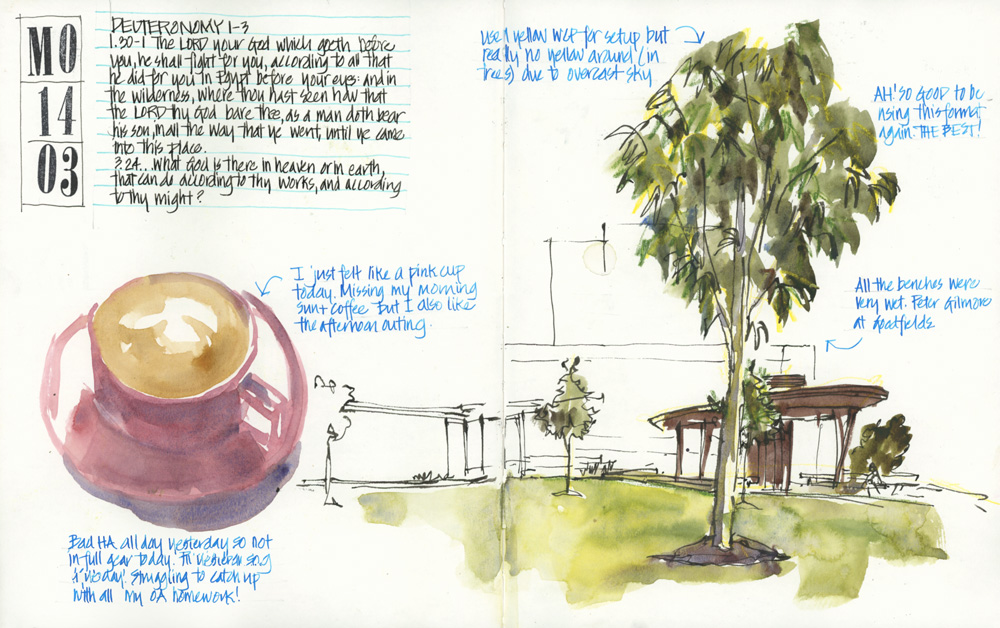 MO
14
03
DEUTERONOMY 1-3
1.30-1 The LORD your God which goeth before
you, he shall fight for you, according to all that
he did for you in Egypt before your eyes: and in
the wilderness, where thou hast seen how that
the LORD thy God bare thee, as a man doth bear
his son, in all the way that ye went, until ye came
into this place.
3.24... what God is there in heaven or in earth,
that can do according to thy works, and according
to thy might?
I just felt like a pink cup
today. Missing my morning
sun + coffee but I also like
the afternoon outing.
Bad HA all day yesterday so not
in full gear today.
struggling to catch up
with all my OA homework!
used yellow WCP for setup but
really no yellow around (in
trees) due to overcast sky
AH! SO GOOD to be
using this format
again. THE BEST!
All the benches were
very wet. Peter Gilmore
at